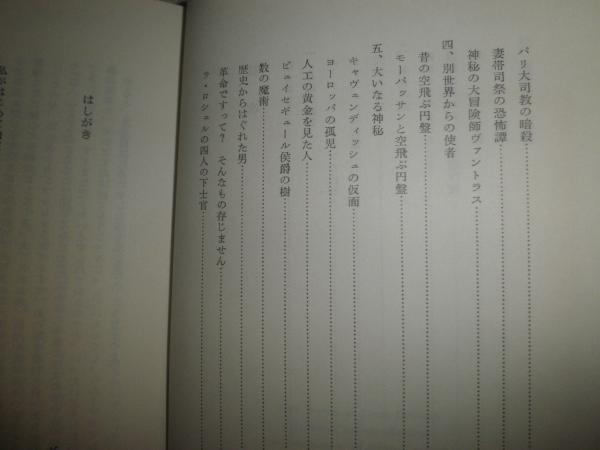 パリ大司教の暗殺
妻帯司祭の恐怖譚
神秘の大冒険師ヴァントラス
四、別世界からの使者
昔の空飛ぶ円盤
モーパッサンと空飛ぶ円盤
五、大いなる神秘
キャヴェンディッシュの仮面
ヨーロッパの孤児
人工の黄金を見た人
ピュイセギュール侯爵の樹
数の魔術
歴史からはぐれた男
革命ですって？　そんなもの存じません
ラ・ロシェルの四人の下士官
はしがき